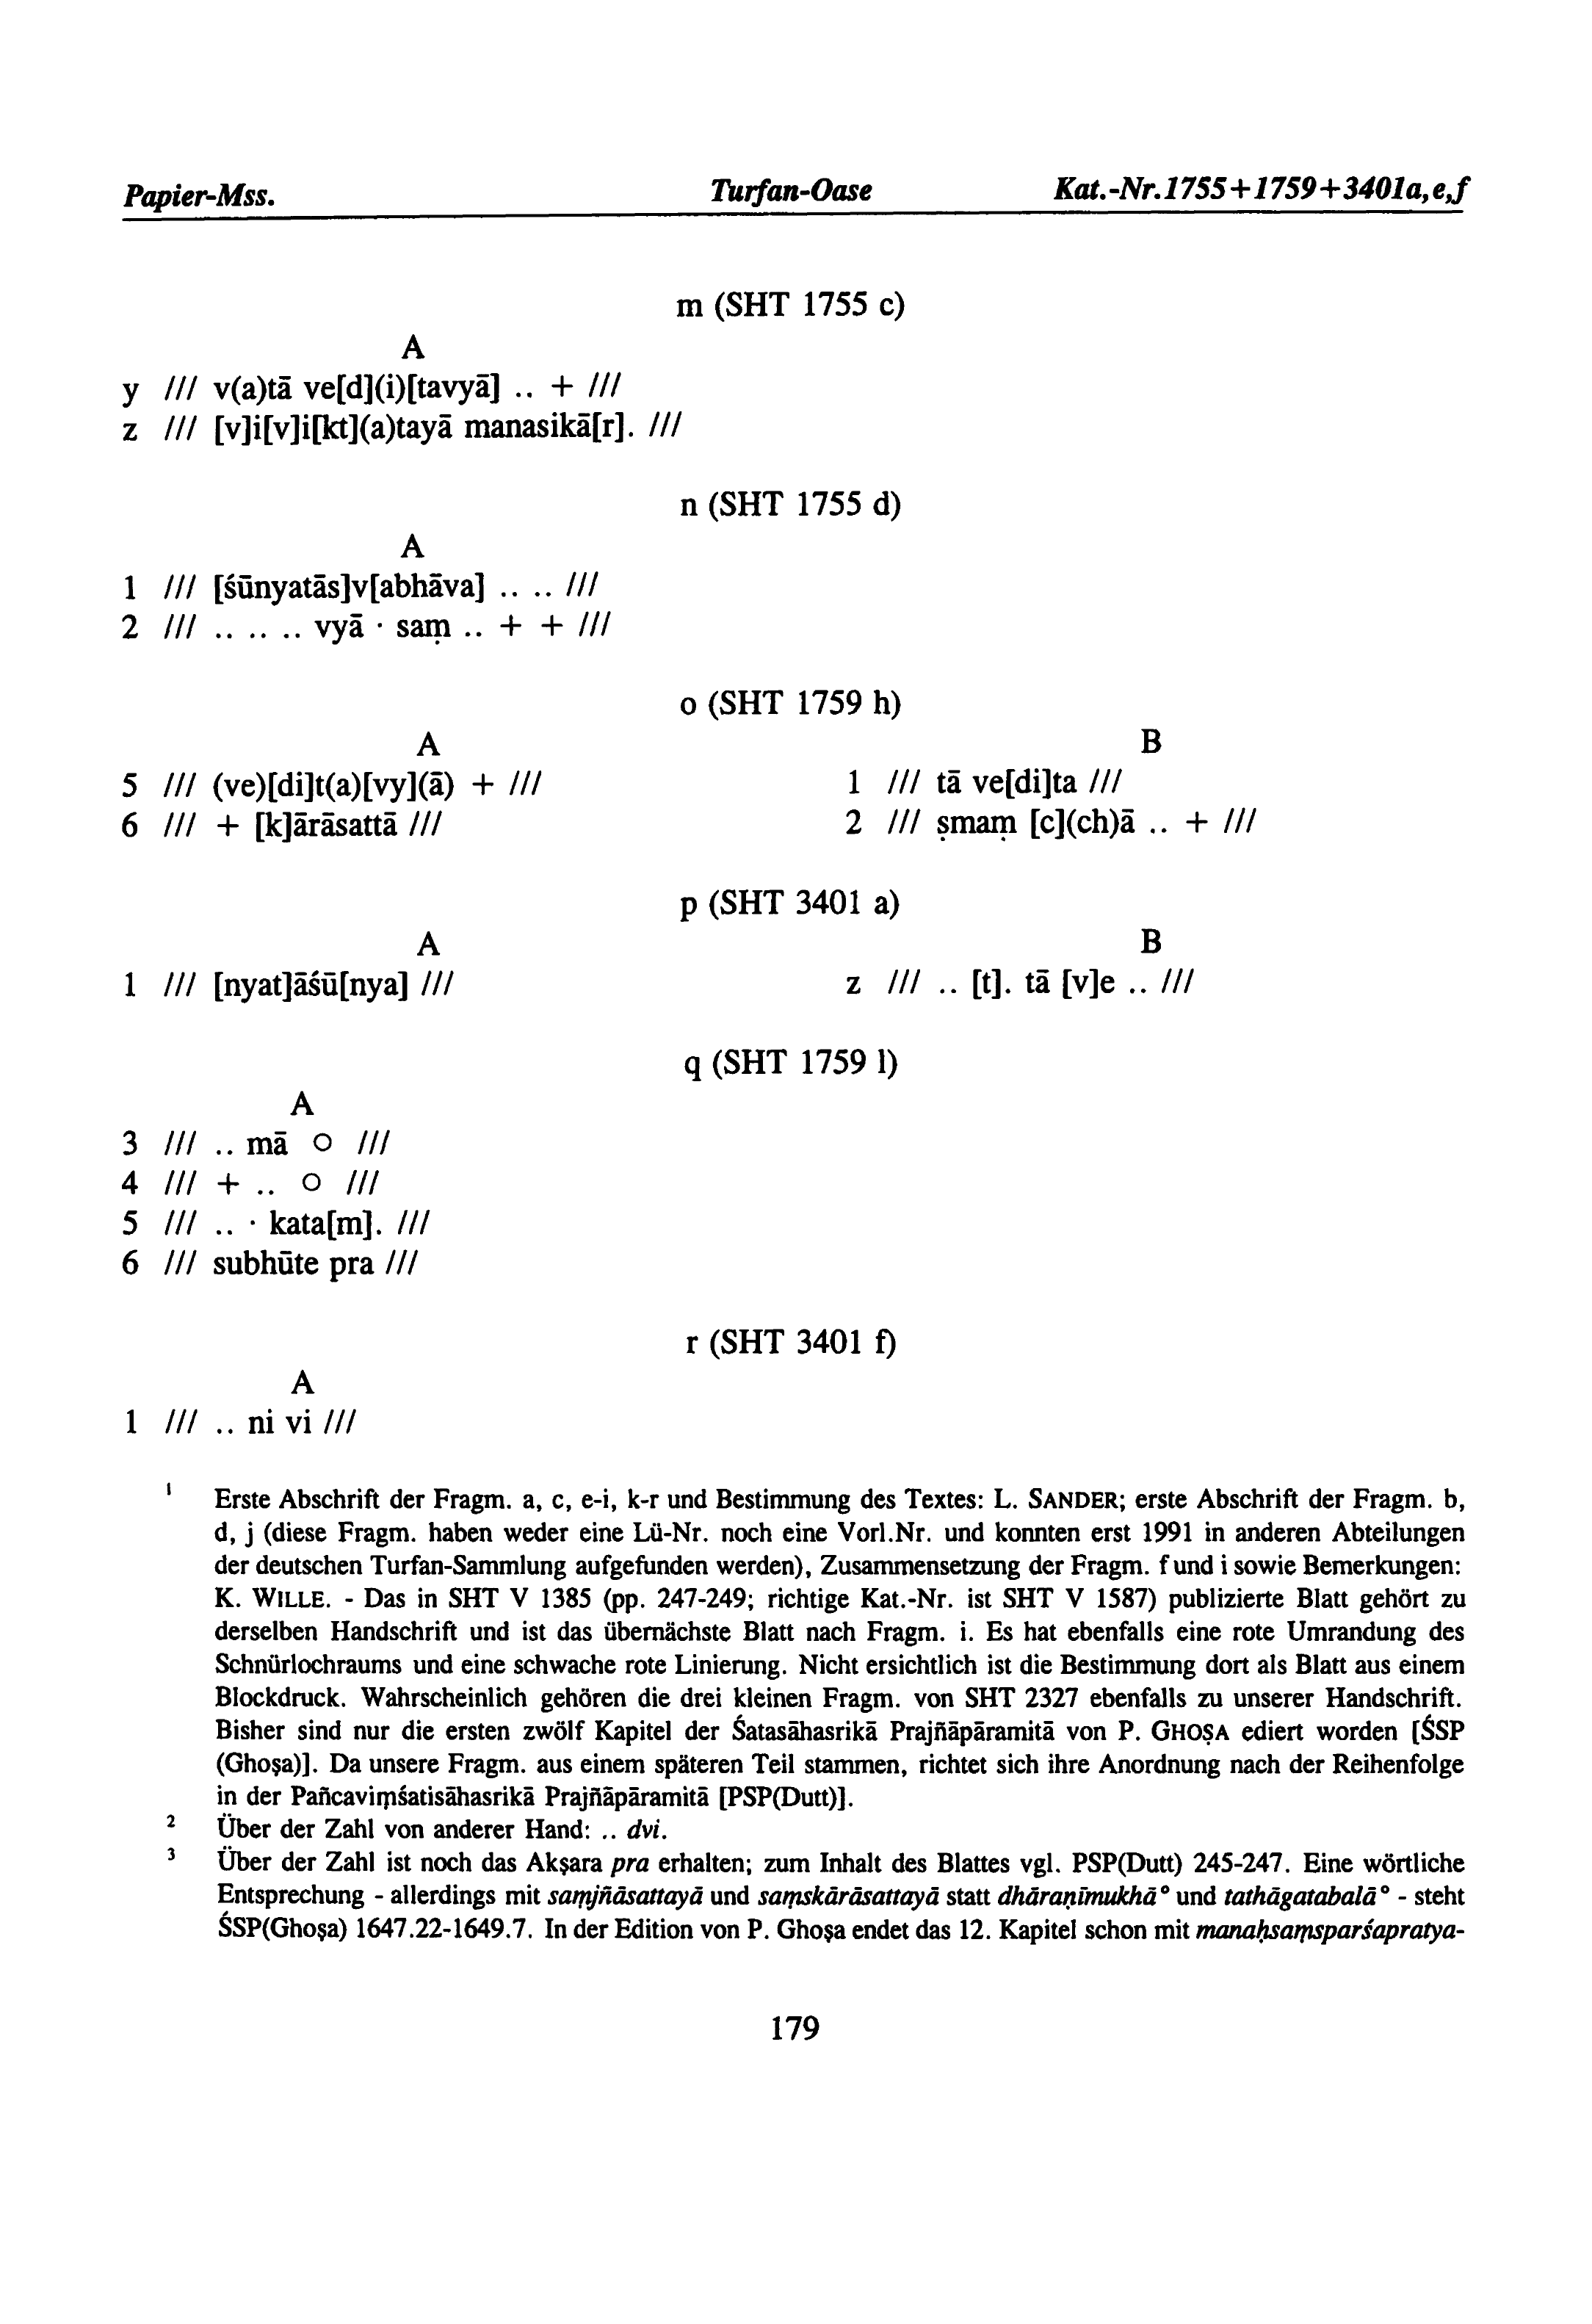 Papier-Mss. Turfan-Oase Kat.-Nr.1755+1759+3401a,e,f
m (SHT 1755 c)
A
y /// v(a)tā ve[d](i)[tavyā] .. + ///
z /// [v]i[v]i[kt](a)tayā manasikā[r]. ///
n (SHT 1755 d)
A
1 /// [śūnyatās]v[abhāva] .. .. ///
2 /// .. .. .. vyā · saṃ .. + + ///
o (SHT 1759 h)
A B
5 /// (ve)[di]t(a)[vy](ā) + /// 1 /// tā ve[di]ta ///
6 /// + [k]ārāsattā /// 2 /// ṣmaṃ [c](ch)ā .. + ///
p (SHT 3401 a)
A B
1 /// [nyat]āśū[nya] /// z /// .. [t]. tā [v]e .. ///
q (SHT 1759 l)
A
3 /// .. mā ○ ///
4 /// + .. ○ ///
5 /// .. · kata[m]. ///
6 /// subhūte pra ///
r (SHT 3401 f)
A
1 /// .. ni vi ///
1 Erste Abschrift der Fragm. a, c, e-i, k-r und Bestimmung des Textes: L. SANDER; erste Abschrift der Fragm. b,
d, j (diese Fragm. haben weder eine Lü-Nr. noch eine Vorl.Nr. und konnten erst 1991 in anderen Abteilungen
der deutschen Turfan-Sammlung aufgefunden werden), Zusammensetzung der Fragm. f und i sowie Bemerkungen:
K. WILLE. - Das in SHT V 1385 (pp. 247-249; richtige Kat.-Nr. ist SHT V 1587) publizierte Blatt gehört zu
derselben Handschrift und ist das übernächste Blatt nach Fragm. i. Es hat ebenfalls eine rote Umrandung des
Schnürlochraums und eine schwache rote Linierung. Nicht ersichtlich ist die Bestimmung dort als Blatt aus einem
Blockdruck. Wahrscheinlich gehören die drei kleinen Fragm. von SHT 2327 ebenfalls zu unserer Handschrift.
Bisher sind nur die ersten zwölf Kapitel der Śatasāhasrikā Prajñāpāramitā von P. GHOṢA ediert worden [ŚSP
(Ghoṣa)]. Da unsere Fragm. aus einem späteren Teil stammen, richtet sich ihre Anordnung nach der Reihenfolge
in der Pañcaviṃśatisāhasrikā Prajñāpāramitā [PSP(Dutt)].
2 Über der Zahl von anderer Hand: .. dvi.
3 Über der Zahl ist noch das Akṣara pra erhalten; zum Inhalt des Blattes vgl. PSP(Dutt) 245-247. Eine wörtliche
Entsprechung - allerdings mit saṃjñāsattayā und saṃskārāsattayā statt dhāraṇīmukhā° und tathāgatabalā° - steht
ŚSP(Ghoṣa) 1647.22-1649.7. In der Edition von P. Ghoṣa endet das 12. Kapitel schon mit manaḥsaṃsparśapratya-
179